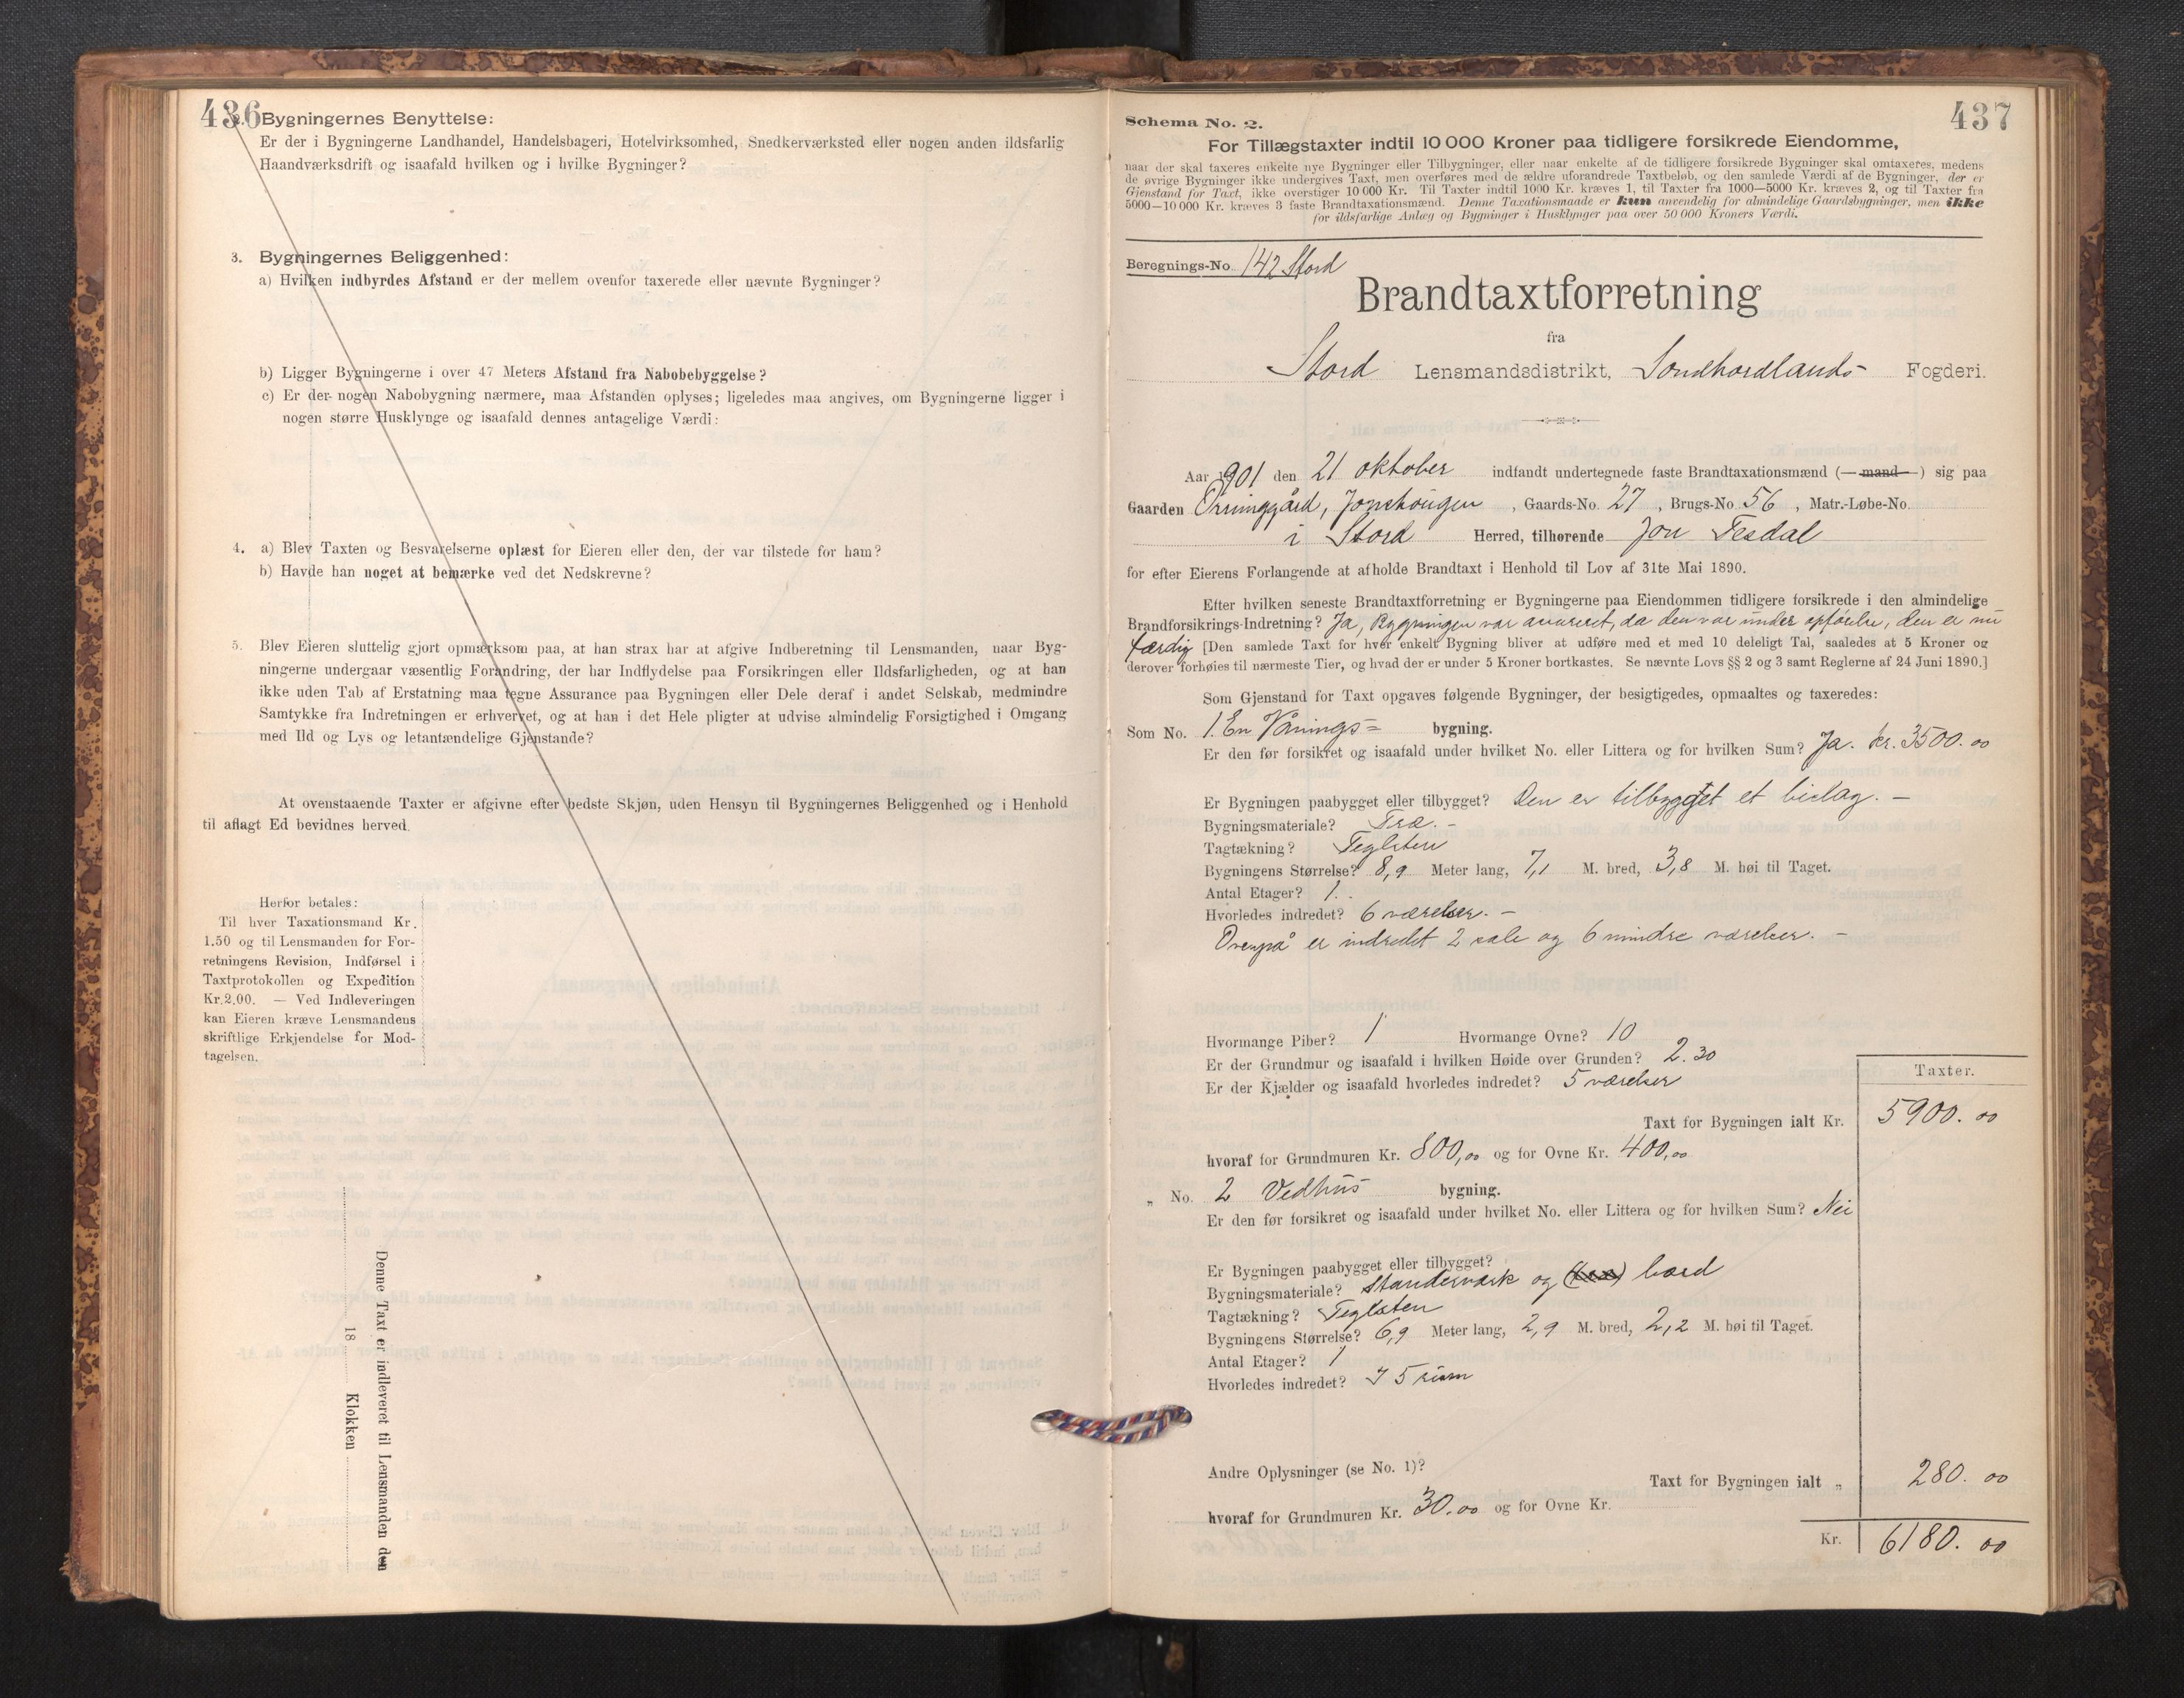 436
2. Bygningernes Benyttelse:
Er der i Bygningerne Landhandel, Handelsbageri, Hotelvirksomhed, Snedkerværksted eller nogen anden ildsfarlig
Haandværksdrift og isaafald hvilken og i hvilke Bygninger?
3. Bygningernes Beliggenhed:
a) Hvilken indbyrdes Afstand er der mellem ovenfor taxerede eller nævnte Bygninger?
b) Ligger Bygningerne i over 47 Meters Afstand fra Nabobebyggelse?
c) Er der nogen Nabobygning nærmere, maa Afstanden oplyses; ligeledes maa angives, om Bygningerne ligger i
nogen større Husklynge og isaafald dennes antagelige Værdi:
4. a) Blev Taxten og Besvarelserne oplæst for Eieren eller den, der var tilstede for ham?
b) Havde han noget at bemærke ved det Nedskrevne?
5. Blev Eieren sluttelig gjort opmærksom paa, at han strax har at afgive Indberetning til Lensmanden, naar Byg-
ningerne undergaar væsentlig Forandring, der har Indflydelse paa Forsikringen eller Ildsfarligheden, og at han
ikke uden Tab af Erstatning maa tegne Assurance paa Bygningen eller Dele deraf i andet Selskab, medmindre
Samtykke fra Indretningen er erhvervet, og at han i det Hele pligter at udvise almindelig Forsigtighed i Omgang
med Ild og Lys og letantændelige Gjenstande?
At ovenstaaende Taxter er afgivne efter bedste Skjøn, uden Hensyn til Bygningernes Beliggenhed og i Henhold
til aflagt Ed bevidnes herved.
Herfor betales:
Til hver Taxationsmand Kr.
1.50 og til Lensmanden for For-
retningens Revision, Indførsel i
Taxtprotokollen og Expedition
Kr. 2.00. — Ved Indleveringen
kan Eieren kræve Lensmandens
skriftlige Erkjendelse for Mod-
tagelsen.
Denne Taxt er indleveret til Lensmanden den
18 Klokken
437
Schema No. 2.
For Tillægstaxter indtil 10 000 Kroner paa tidligere forsikrede Eiendomme,
naar der skal taxeres enkelte nye Bygninger eller Tilbygninger, eller naar enkelte af de tidligere forsikrede Bygninger skal omtaxeres, medens
de øvrige Bygninger ikke undergives Taxt, men overføres med de ældre uforandrede Taxtbeløb, og den samlede Værdi af de Bygninger, der er
Gjenstand for Taxt, ikke overstiger 10 000 Kr. Til Taxter indtil 1000 Kr. kræves 1, til Taxter fra 1000—5000 Kr. kræves 2, og til Taxter fra
5000—10 000 Kr. kræves 3 faste Brandtaxationsmænd. Denne Taxationsmaade er kun anvendelig for almindelige Gaardsbygninger, men ikke
for ildsfarlige Anlæg og Bygninger i Husklynger paa over 50 000 Kroners Værdi.
Beregnings-No. 142 Stord
Brandtaxtforretning
fra
Stord Lensmandsdistrikt, Søndhordlands Fogderi.
Aar 1901 den 21 oktober indfandt undertegnede faste Brandtaxationsmænd (— mand —) sig paa
Gaarden Orninggård, Jonshougen, Gaards-No. 27, Brugs-No. 56, Matr.-Løbe-No.
i Stord Herred, tilhørende Jon Tesdal
for efter Eierens Forlangende at afholde Brandtaxt i Henhold til Lov af 31te Mai 1890.
Efter hvilken seneste Brandtaxtforretning er Bygningerne paa Eiendommen tidligere forsikrede i den almindelige
Brandforsikrings-Indretning? Ja, Bygningen var assureret, da den var under opförelse, den er nu
færdig [Den samlede Taxt for hver enkelt Bygning bliver at udføre med et med 10 deleligt Tal, saaledes at 5 Kroner og
derover forhøies til nærmeste Tier, og hvad der er under 5 Kroner bortkastes. Se nævnte Lovs §§ 2 og 3 samt Reglerne af 24 Juni 1890.]
Som Gjenstand for Taxt opgaves følgende Bygninger, der besigtigedes, opmaaltes og taxeredes:
Som No. 1. En Vånings= bygning.
Er den før forsikret og isaafald under hvilket No. eller Littera og for hvilken Sum? Ja. kr. 3500.00
Er Bygningen paabygget eller tilbygget? Den er tilbygget et bislag. —
Bygningsmateriale? Træ. —
Tagtækning? Teglsten
Bygningens Størrelse? 8,9 Meter lang, 7,1 M. bred, 3,8 M. høi til Taget.
Antal Etager? 1.
Hvorledes indredet? 6 værelser. —
Ovenpå er indredet 2 sale og 6 mindre værelser. —
Hvormange Piber? 1 Hvormange Ovne? 10
Er der Grundmur og isaafald i hvilken Høide over Grunden? 2.30
Er der Kjælder og isaafald hvorledes indredet? 5 værelser
Taxter.
Taxt for Bygningen ialt Kr. 5900.00
hvoraf for Grundmuren Kr. 800,00 og for Ovne Kr. 400,00
„ No. 2 Vedhus bygning.
Er den før forsikret og isaafald under hvilket No. eller Littera og for hvilken Sum? Nei
Er Bygningen paabygget eller tilbygget?
Bygningsmateriale? Standerværk og bord
Tagtækning? Teglsten
Bygningens Størrelse? 6,9 Meter lang, 2,9 M. bred, 2,2 M. høi til Taget.
Antal Etager? 1
Hvorledes indredet? I 5 rum
Andre Oplysninger (se No. 1)?
Taxt for Bygningen ialt „ 280.00
hvoraf for Grundmuren Kr. 30.00 og for Ovne Kr.
Kr. 6180.00